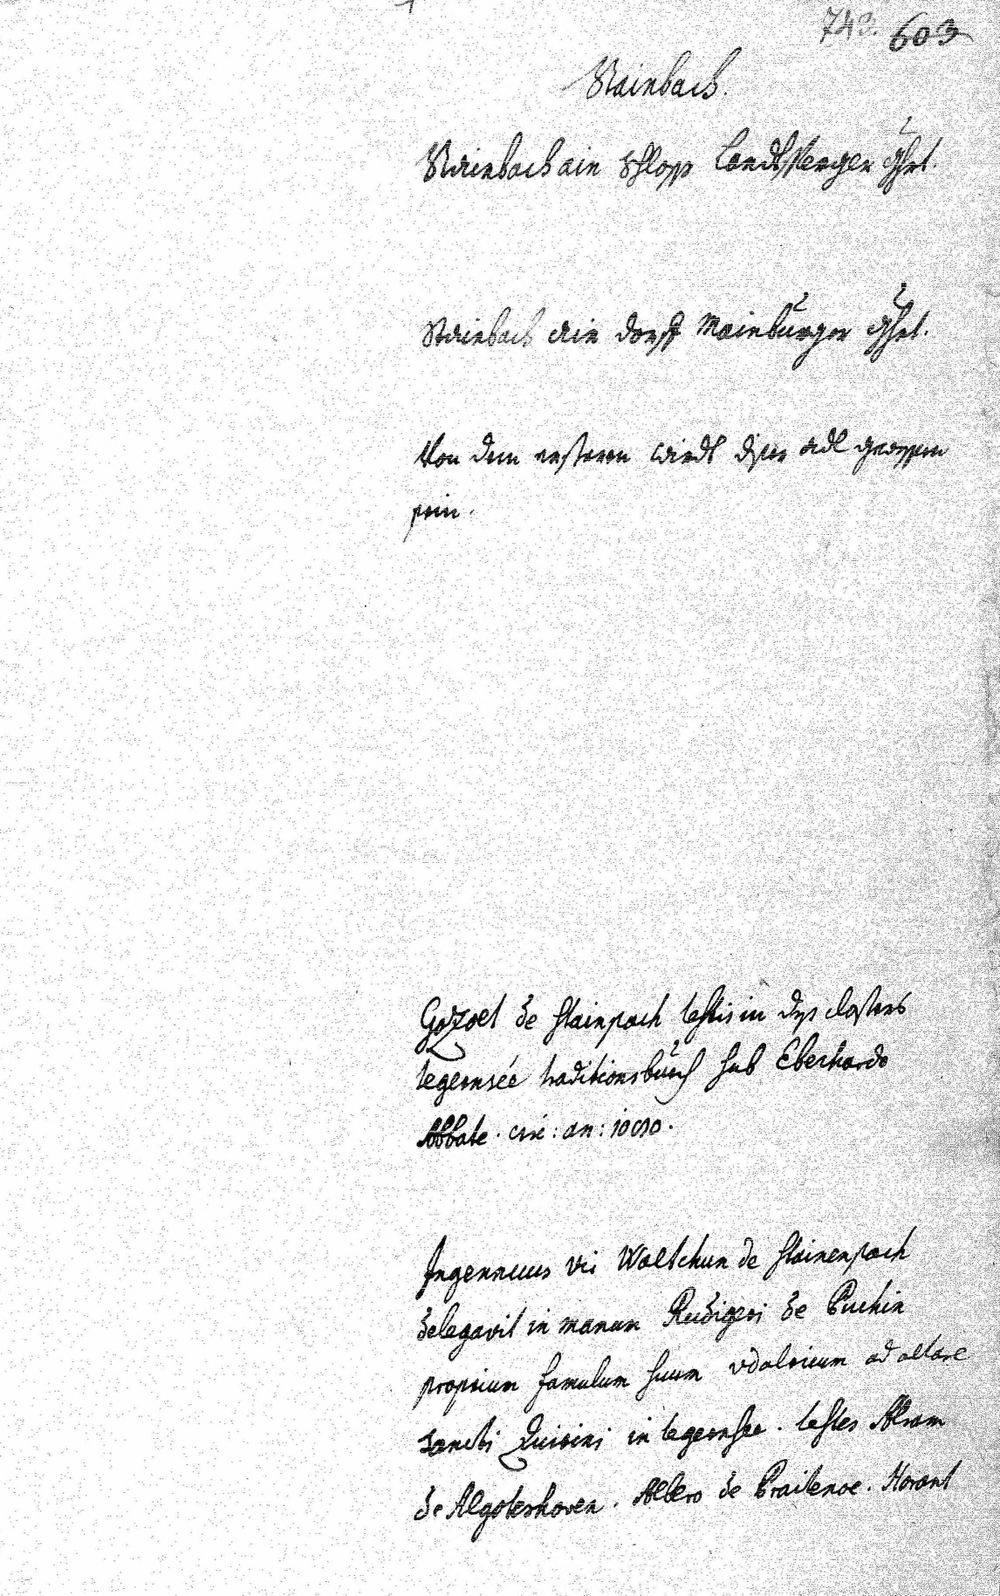 743. 603
Stainbach.
Stainbach ain Schloss Landtsperger ghrt.
Stainbach ain dorff Mainburger ghrt.
Von dem ersteren wirdt diser adl gewessen
sein.
Gozoel de stainpach testis in dess closters
tegernsée traditionsbuech sub Eberhardo
Abbate. circ: an: 1090.
Ingenuus vir Waltchun de stainenpach
delegavit in manum Rudigeri de Puchin
proprium famulum suum vdalricum ad altare
sancti Quirini in tegernsee. testes Abram
de Algoteshoven. Albero de Praitenoe. Horant